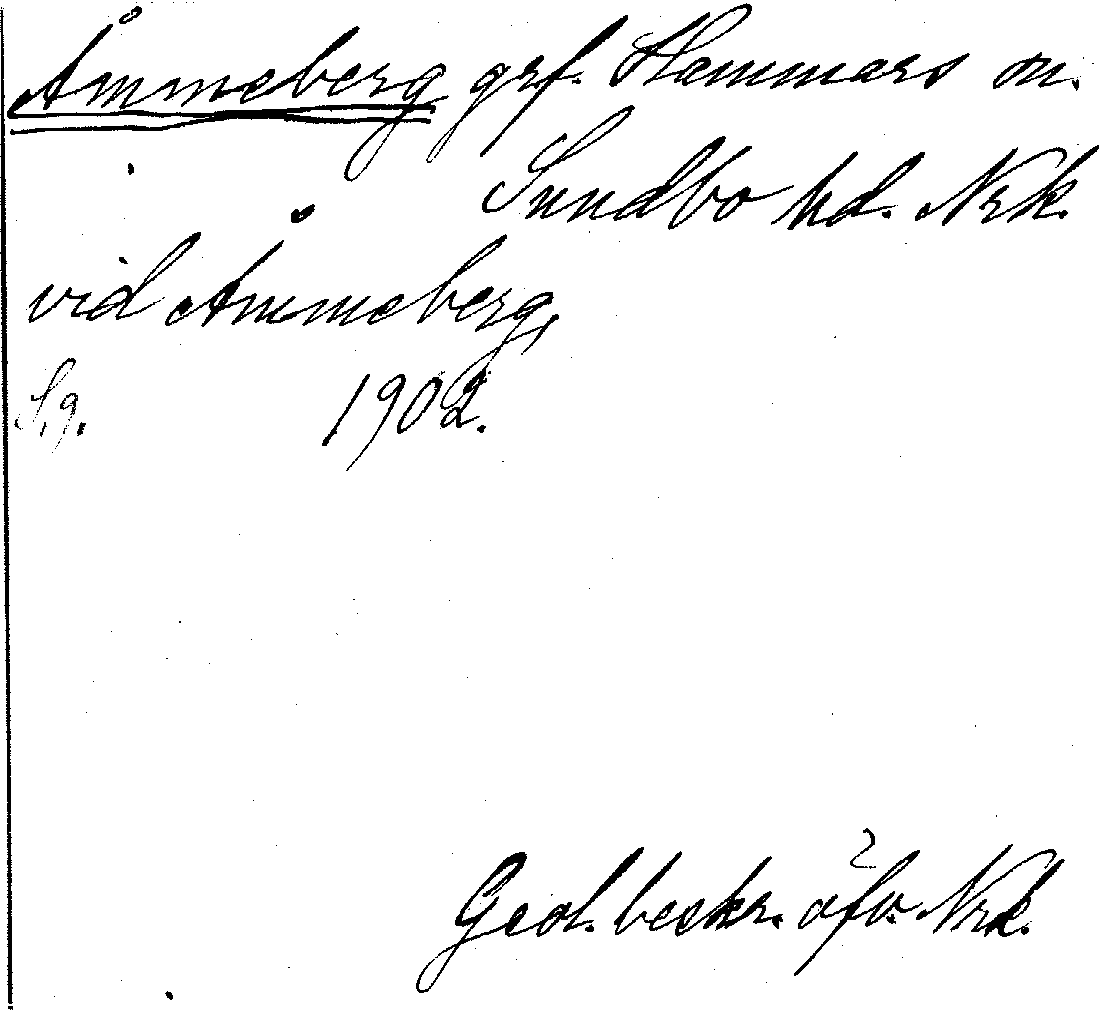 Åmmeberg grf. Hammars sn.
Sundbo hd. Nrk.
vid Åmmeberg,
S,g. 1902.
Geol. beskr. öfv. Nrk.